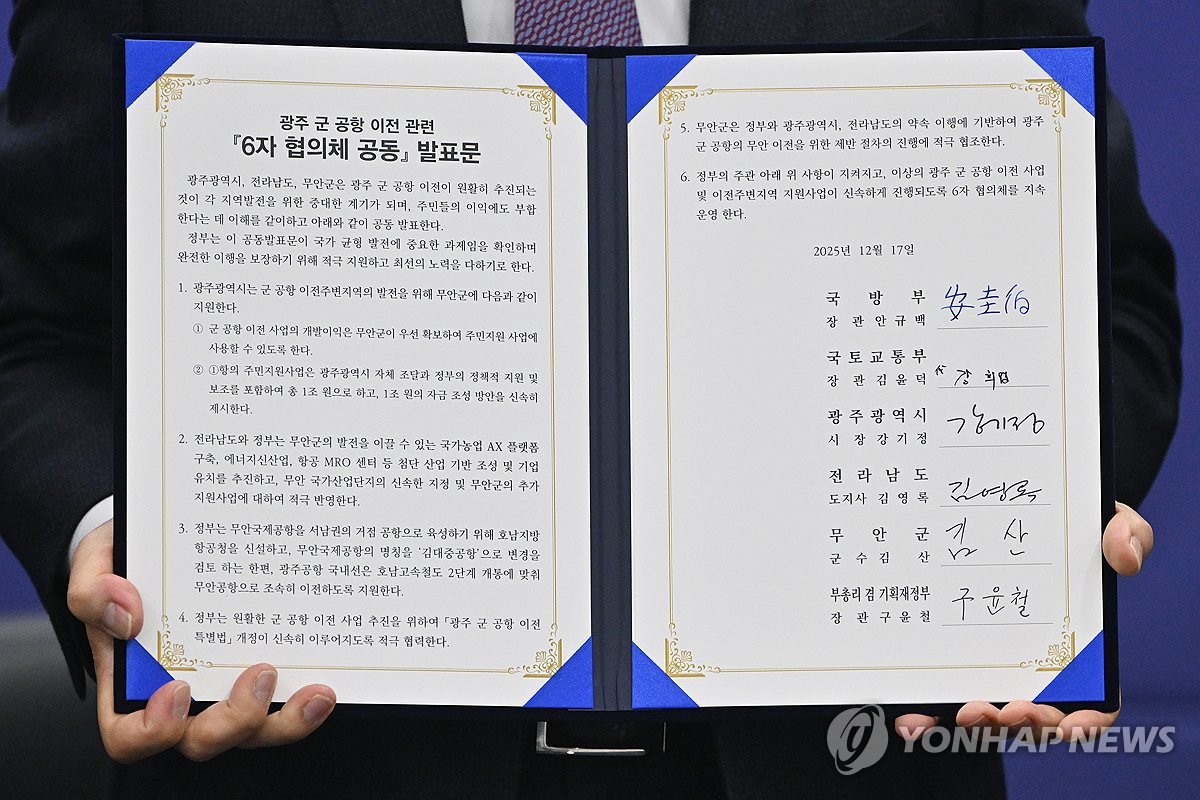 광주 군 공항 이전 관련
『6자 협의체 공동』 발표문
광주광역시, 전라남도, 무안군은 광주 군 공항 이전이 원활히 추진되는
것이 각 지역발전을 위한 중대한 계기가 되며, 주민들의 이익에도 부합
한다는 데 이해를 같이하고 아래와 같이 공동 발표한다.
정부는 이 공동발표문이 국가 균형 발전에 중요한 과제임을 확인하며
완전한 이행을 보장하기 위해 적극 지원하고 최선의 노력을 다하기로 한다.
1. 광주광역시는 군 공항 이전주변지역의 발전을 위해 무안군에 다음과 같이
지원한다.
① 군 공항 이전 사업의 개발이익은 무안군이 우선 확보하여 주민지원 사업에
사용할 수 있도록 한다.
② ①항의 주민지원사업은 광주광역시 자체 조달과 정부의 정책적 지원 및
보조를 포함하여 총 1조 원으로 하고, 1조 원의 자금 조성 방안을 신속히
제시한다.
2. 전라남도와 정부는 무안군의 발전을 이끌 수 있는 국가농업 AX 플랫폼
구축, 에너지신산업, 항공 MRO 센터 등 첨단 산업 기반 조성 및 기업
유치를 추진하고, 무안 국가산업단지의 신속한 지정 및 무안군의 추가
지원사업에 대하여 적극 반영한다.
3. 정부는 무안국제공항을 서남권의 거점 공항으로 육성하기 위해 호남지방
항공청을 신설하고, 무안국제공항의 명칭을 '김대중공항'으로 변경을
검토 하는 한편, 광주공항 국내선은 호남고속철도 2단계 개통에 맞춰
무안공항으로 조속히 이전하도록 지원한다.
4. 정부는 원활한 군 공항 이전 사업 추진을 위하여 「광주 군 공항 이전
특별법」 개정이 신속히 이루어지도록 적극 협력한다.
5. 무안군은 정부와 광주광역시, 전라남도의 약속 이행에 기반하여 광주
군 공항의 무안 이전을 위한 제반 절차의 진행에 적극 협조한다.
6. 정부의 주관 아래 위 사항이 지켜지고, 이상의 광주 군 공항 이전 사업
및 이전주변지역 지원사업이 신속하게 진행되도록 6자 협의체를 지속
운영 한다.
2025년 12월 17일
국 방 부
장 관 안 규 백 安圭伯
국토교통부
장 관 김 윤 덕 강희업
광주광역시
시 장 강 기 정 강기정
전 라 남 도
도지사 김 영 록 김영록
무 안 군
군 수 김 산 김 산
부총리 겸 기획재정부
장 관 구 윤 철 구윤철
YONHAP NEWS